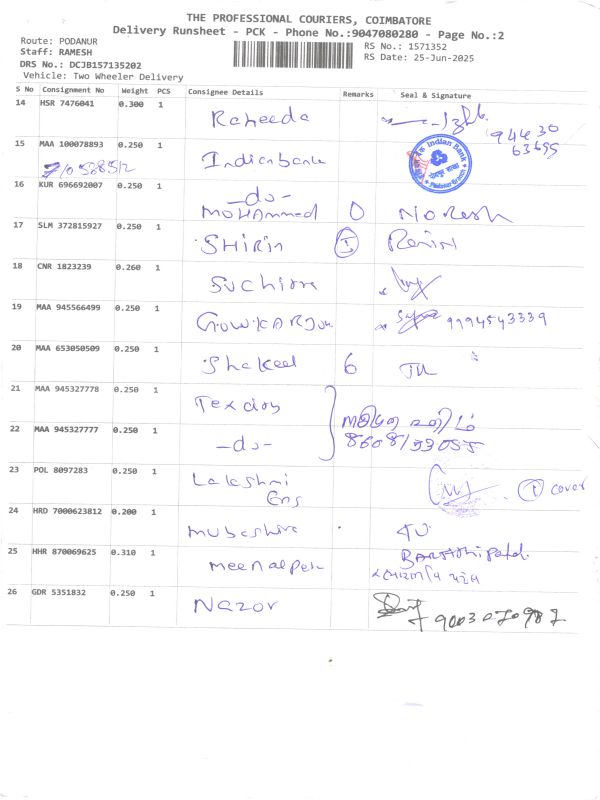 THE PROFESSIONAL COURIERS, COIMBATORE
Delivery Runsheet - PCK - Phone No.:9047080280 - Page No.:2
Route: PODANUR
Staff: RAMESH
RS No.: 1571352
DRS No.: DCJB157135202
RS Date: 25-Jun-2025
Vehicle: Two Wheeler Delivery
S No Consignment No Weight PCS Consignee Details Remarks Seal & Signature
14 HSR 7476041 0.300 1 Raheeda 94430
63699
15 MAA 100078893 0.250 1 Indianbank Indian Bank
16 KUR 696692007 0.250 1 -do-
Mohammed O Noresh
17 SLM 372815927 0.250 1 SHIRIN I Renin
18 CNR 1823239 0.260 1 Suchitra
19 MAA 945566499 0.250 1 9994543339
20 MAA 653050509 0.250 1 Shakeel 6
21 MAA 945327778 0.250 1
22 MAA 945327777 0.250 1 -do- 8608199055
23 POL 8097283 0.250 1 Lakshmi
Eng 1 cover
24 HRD 7000623812 0.200 1
25 HHR 870069625 0.310 1
26 GDR 5351832 0.250 1 Nazor 9003070987